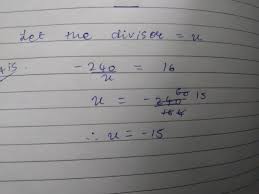 Let the divisor = x
Ans.
-240/x = 16
x = -240/16 60 15 4
∴ x = -15